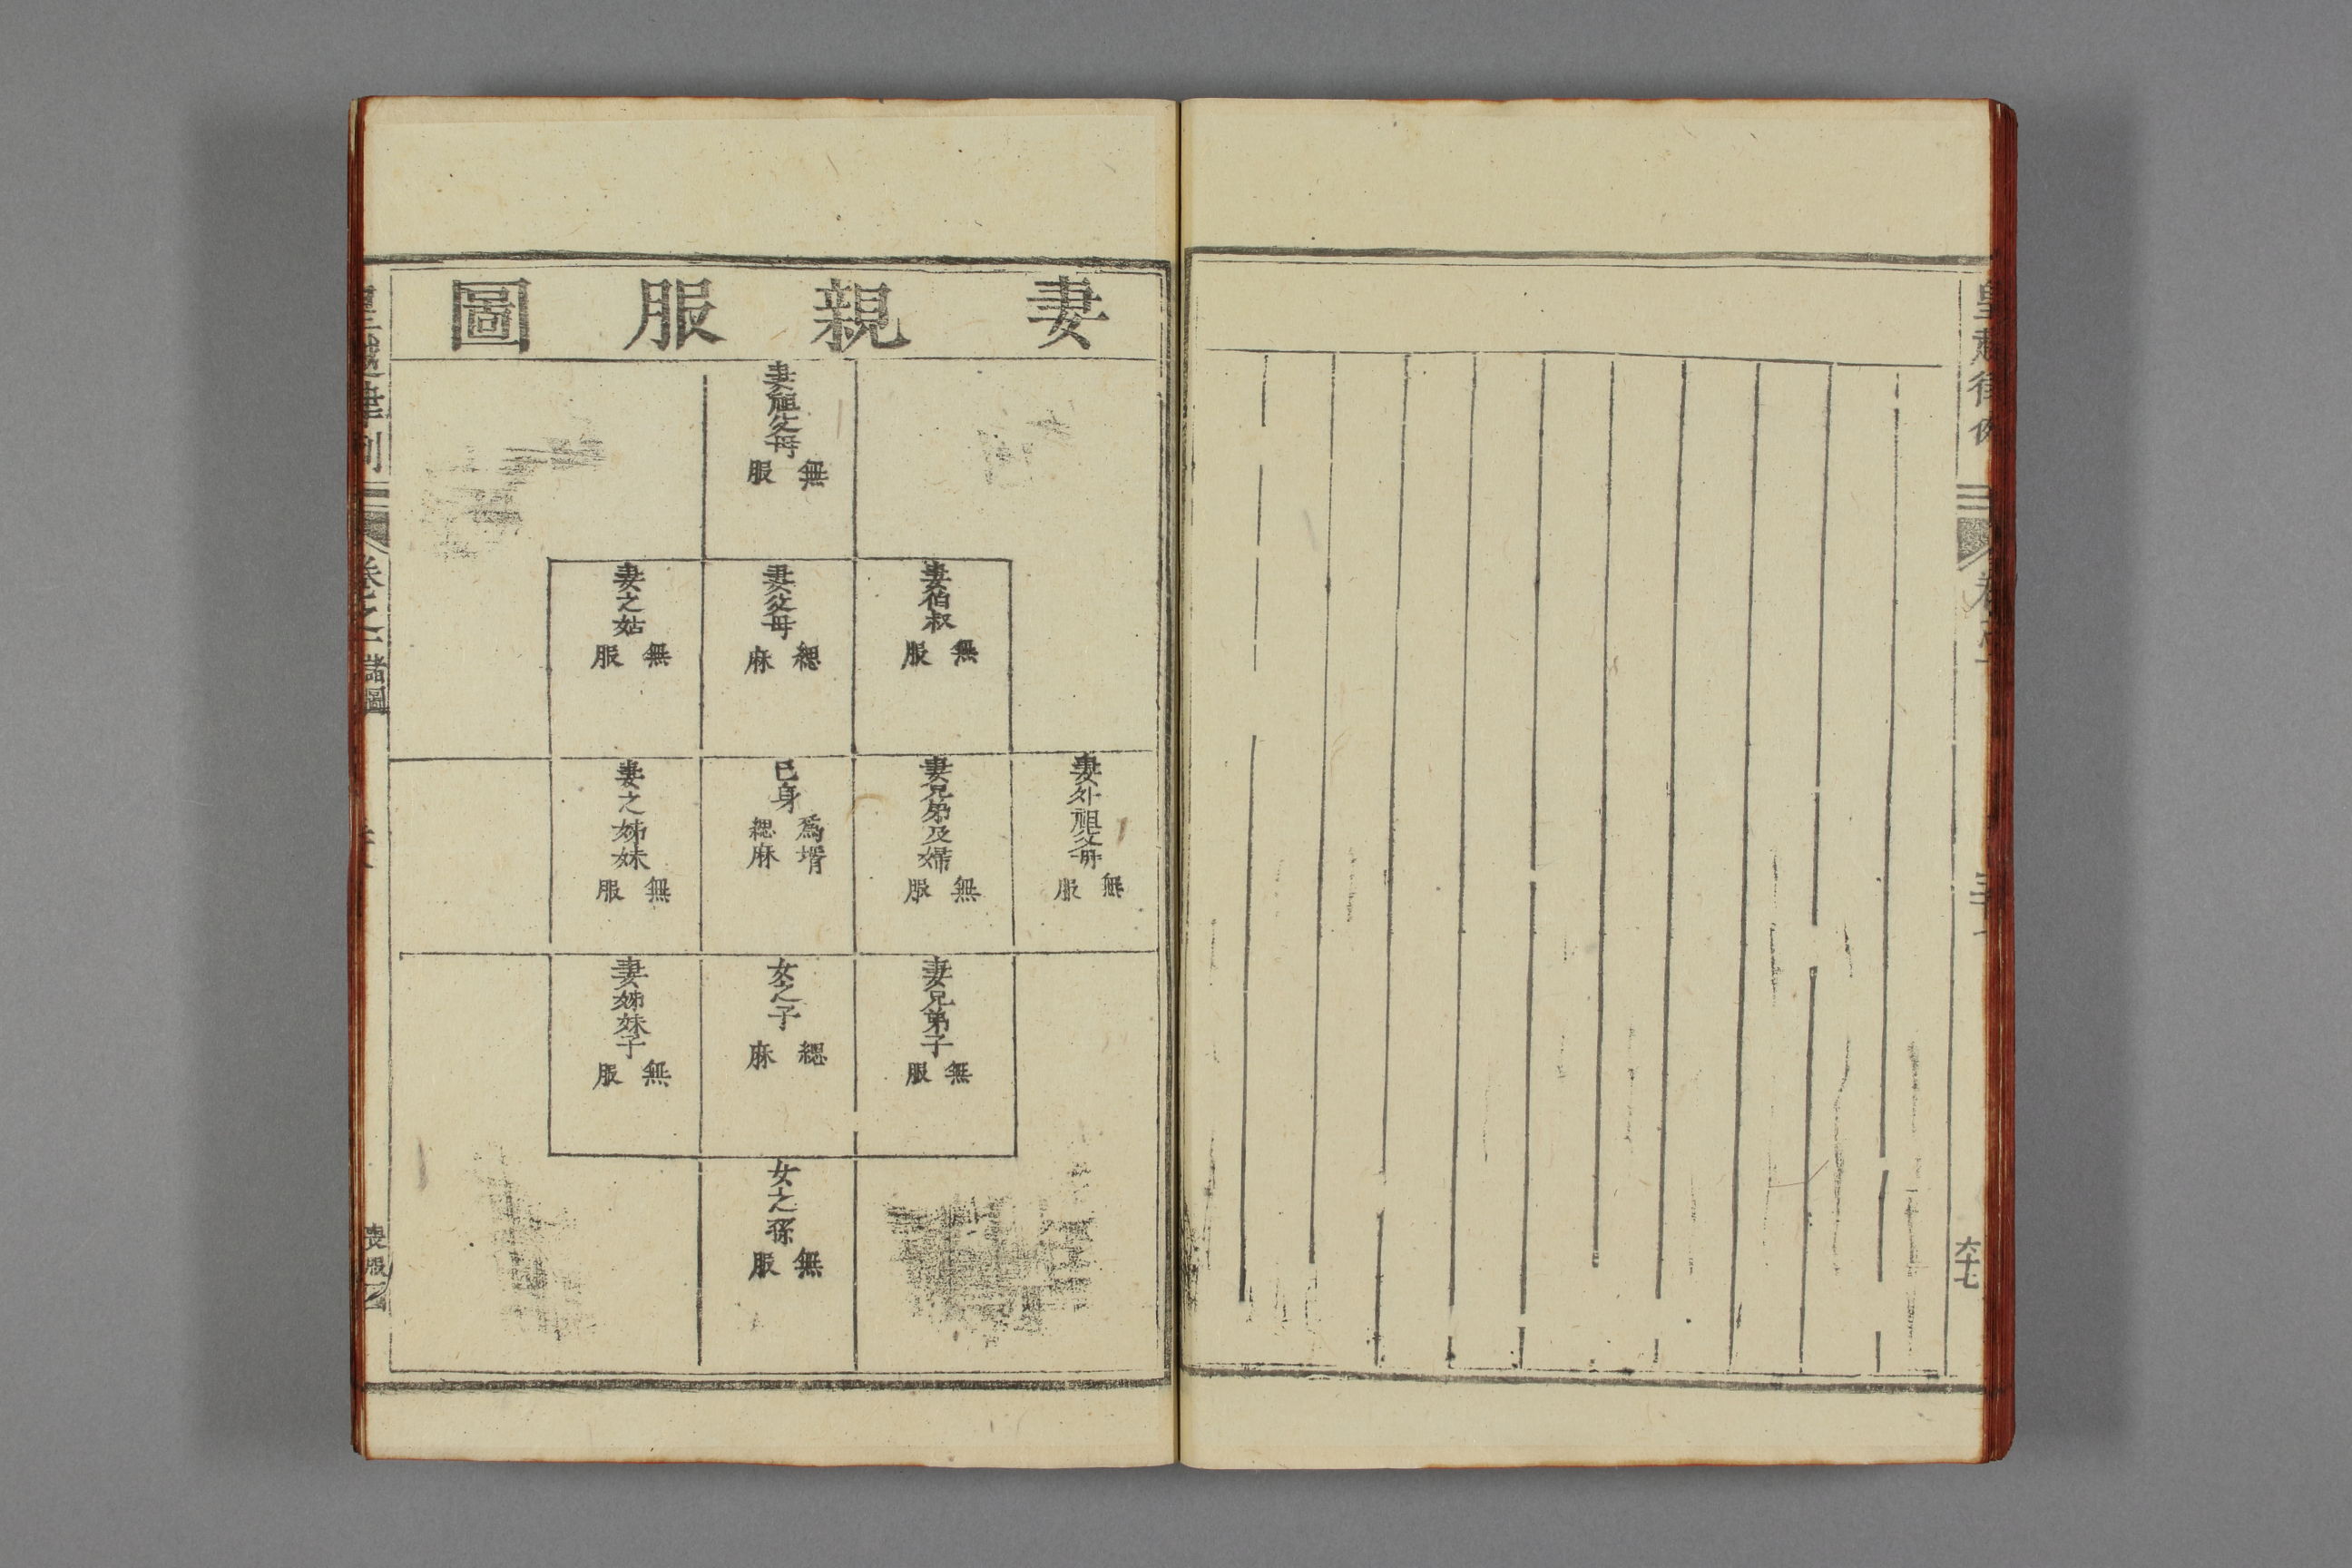 皇越律例
六十七
妻親服圖
妻祖父母
無服
妻伯叔
無服
妻父母
緦麻
妻之姑
無服
妻外祖父母
無服
妻兄弟及婦
無服
己身
為壻緦麻
妻之姊妹
無服
妻兄弟子
無服
女之子
緦麻
妻姊妹子
無服
女之孫
無服
皇越律例
卷之二
諸圖
喪服